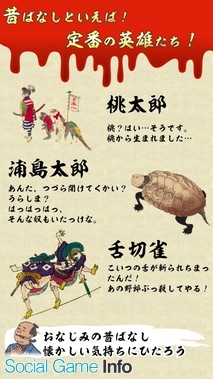 昔ばなしといえば！
定番の英雄たち！
桃太郎
桃？はい…そうです。
桃から生まれました…
浦島太郎
あんた、つづら開けてくかい？
うらしま？
はっはっはっ、
そんな奴もいたっけな。
舌切雀
こいつの舌が斬られちまっ
たんだ！
あの野郎ぶっ殺してやる！
おなじみの昔ばなし
懐かしい気持ちにひたろう
Social Game Info